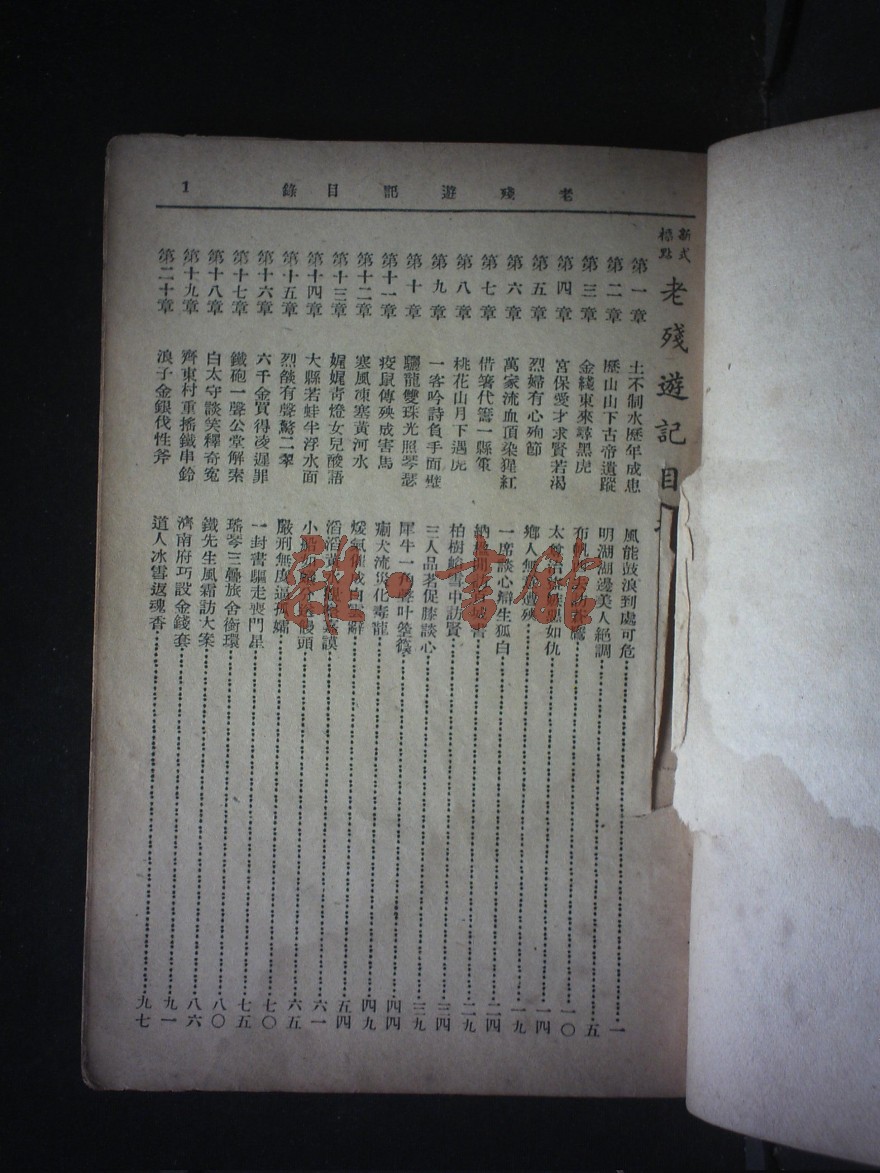 老殘遊記目錄
1
新式
標點
老殘遊記目
第一章 土不制水歷年成患 風能鼓浪到處可危 一
第二章 歷山山下古帝遺蹤 明湖湖邊美人絕調 五
第三章 金綫東來尋黑虎 布帆 一〇
第四章 宮保愛才求賢若渴 太尊 如仇 一四
第五章 烈婦有心殉節 鄉人無 遭殃 一九
第六章 萬家流血頂染猩紅 一席談心辯生狐白 二四
第七章 借箸代籌一縣策 納 書 二九
第八章 桃花山月下遇虎 柏樹峪雪中訪賢 三四
第九章 一客吟詩負手面壁 三人品茗促膝談心 三九
第十章 驪龍雙珠光照琴瑟 犀牛一角 叶箜篌 四四
第十一章 疫鼠傳殃成害馬 瘈犬流災化毒龍 四九
第十二章 寒風凍塞黃河水 煖氣催成白雪辭 五四
第十三章 娓娓青燈女兒酸語 滔滔黃水 嘉謨 六一
第十四章 大縣若蛙半浮水面 小船 饅頭 六五
第十五章 烈燄有聲驚二翠 嚴刑無度逼孤孀 七〇
第十六章 六千金買得凌遲罪 一封書驅走喪門星 七五
第十七章 鐵砲一聲公堂解索 瑤琴三疊旅舍銜環 八〇
第十八章 白太守談笑釋奇冤 鐵先生風霜訪大案 八六
第十九章 齊東村重搖鐵串鈴 濟南府巧設金錢套 九一
第二十章 浪子金銀伐性斧 道人冰雪返魂香 九七
雜·書館